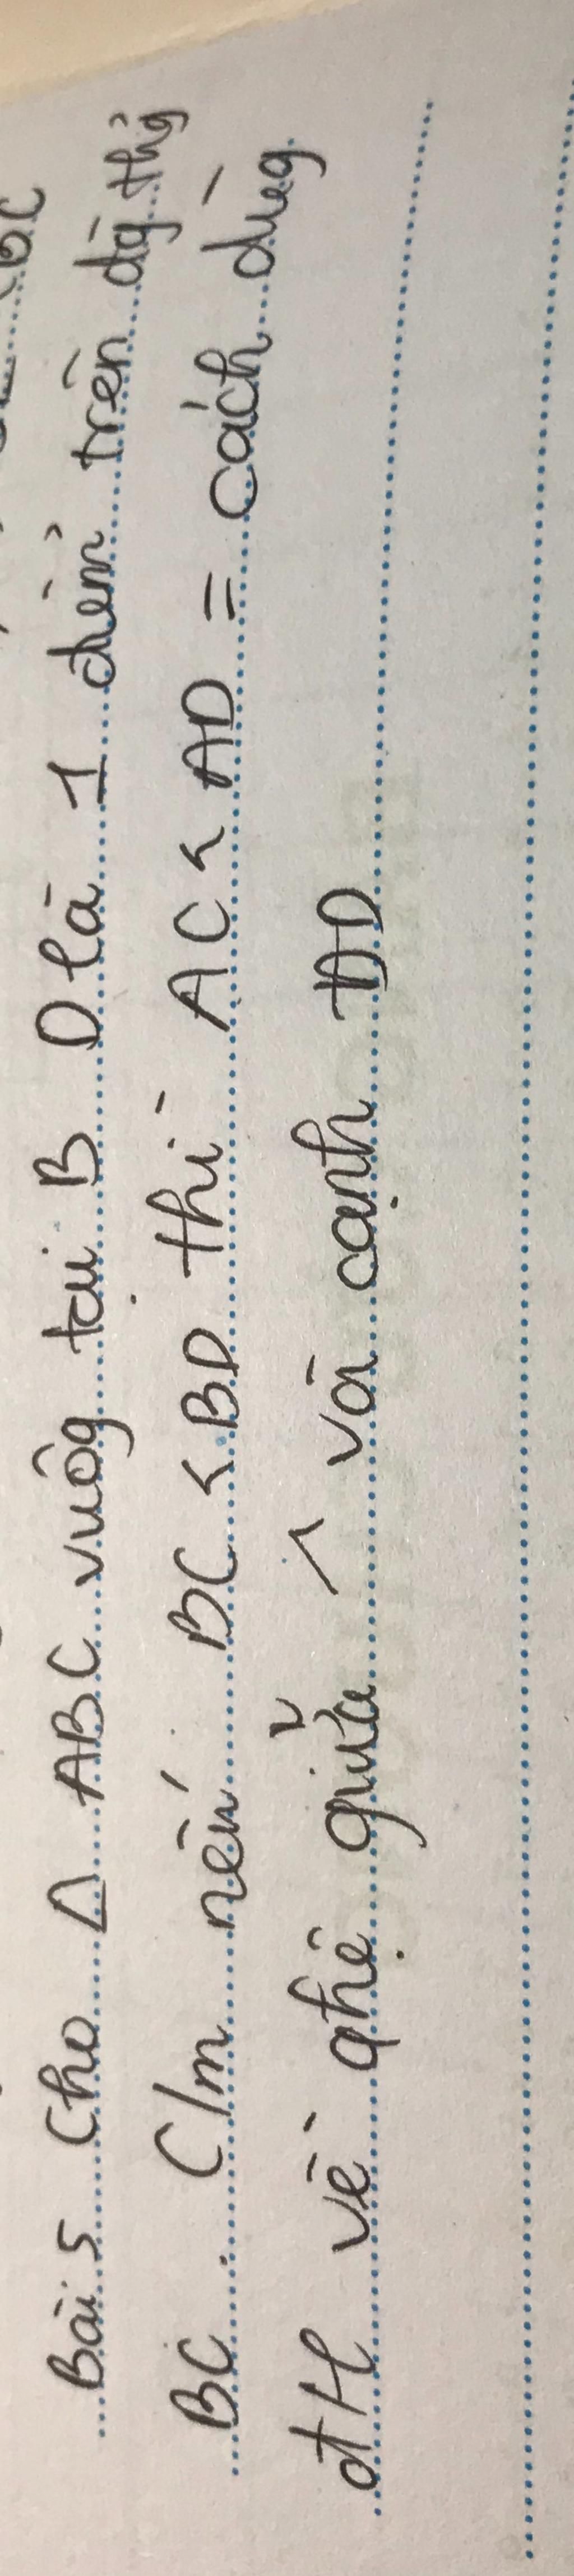 Bài 5 Cho Δ ABC vuôg tại B D là 1 điểm trên đg thg
BC. C/m nếu BC < BD thì AC < AD = cách dùg
đH về qhệ giữa ^ và cạnh